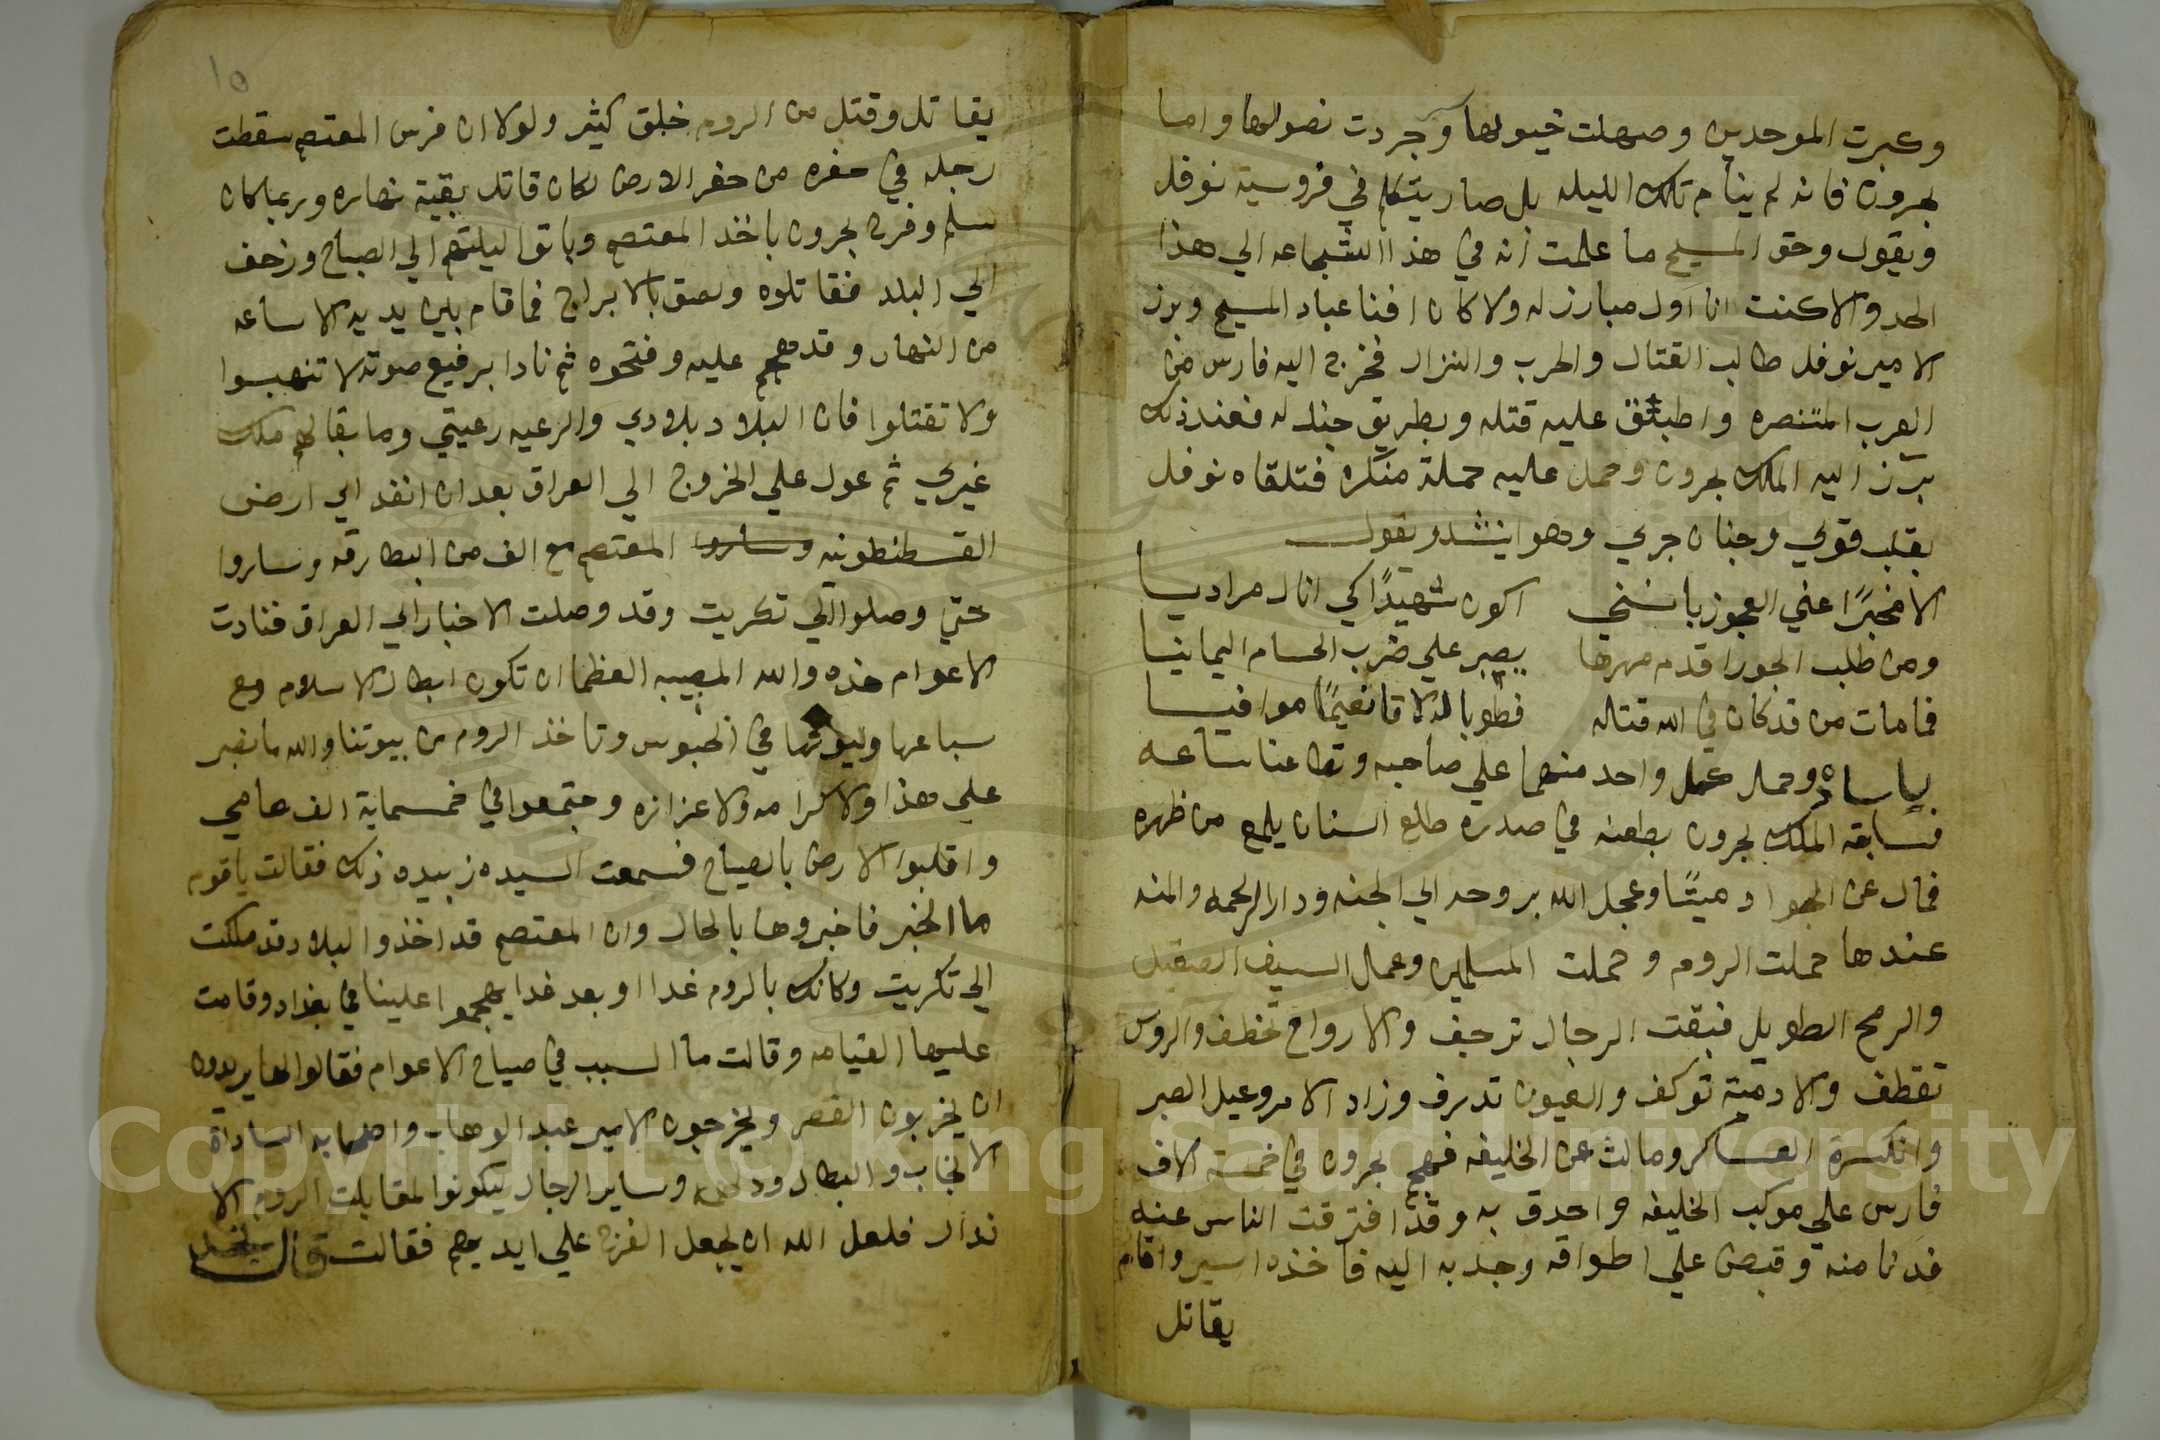 وكبرت الموحدين وصهلت خيولها وجردت نصولها واما
بهرون فانه لم ينام تلك الليله بل صار يتكلم في فروسية نوفل
ويقول وحق المسيح ما علمت انه في هذا الشجاعه الي هذا
الحد والا كنت انا اول مبارز له ولا كان افنا عباد المسيح وبرز
الامير نوفل طالب القتال والحرب والنزال فخرج اليه فارس من
العرب المتنصره واطبق عليه قتله وبطريق جندله فعند ذلك
برز اليه الملك بهرون وحمل عليه حملة منكره فتلقاه نوفل
بقلب قوي وجنان جري وهو اينشد ويقول
الا مخبرًا عني العجوز باننني اكون شهيدًا كي انال مراديا
ومن طلب الحورا قدم مهرها يصبر علي ضرب الحسام اليمانيا
فمامات من قد كان في الله قتاله فطوبا له لاقا نعيمًا موافيا
ياساده وحمل كل واحد منهما علي صاحبه وتطاعنا ساعه
فسابقه الملك بحرون بطعنه في صدره طلع السنان يلمع من ظهره
فمال عن الجواد ميتًا وعجل الله بروحه الي الجنه ودار الرحمه والمنه
عندها حملت الروم وحملت المسلمين وعمل السيف الصقيل
والرمح الطويل فبقت الرجال ترجف والارواح تخطف والروس
تقطف والادمية توكف والعيون تذرف وزاد الامر وعيل الصبر
وانكسرة العساكر ومالت عن الخليفه فهجم بحرون في خمسة الاف
فارس علي موكب الخليفه واحدق به وقد افترقت الناس عنه
فدنا منه وقبض علي اطواقه وجدبه اليه فاخذه اسير واقام
يقاتل
١٥
يقاتل وقتل من الروم خلق كثير ولولا ان فرس المعتصم سقطت
رجله في حفره من حفر الارض لكان قاتل بقية نهاره وربما كان
سلم وفرح بحرون باخذ المعتصم وباتوا ليلتهم الي الصباح وزحف
الي البلد فقاتلوه وبالابراج فما قام بين يديه الا ساعه
من النهار وقد هجم عليه وفتحوه ثم نادا برفيع صوته لا تنهبوا
ولا تقتلوا فان البلاد بلادي والرعيه رعيتي وما بقا لهم ملك
غيري ثم عول علي الخروج الي العراق بعد ان انفد الي ارض
القسطنطونيه وساروا المعتصم مع الف من البطارقه وساروا
حتي وصلوا الي تكريت وقد وصلت الاخبار الي العراق فنادت
الاعوام هذه والله المصيبه العظما ان تكون ابطال الاسلام مع
سباعها وليوثها في الحبوس وتاخذ الروم من بيوتنا والله ما نصبر
علي هذا ولا كرامه ولا عزازه وجتمعوا في خمسماية الف عامي
واقلبوا الارض بالصياح فسمعت السيده زبيده ذلك فقالت ياقوم
ما الخبر فاخبروها بالحال وان المعتصم قد اخذ والبلاد قد ملكت
الي تكريت وكانك بالروم غدا او بعد غدا يهجموا علينا في بغداد وقامت
عليها القيامه وقالت ما السبب في صياح الاعوام فقالوا لها يريدون
ان يخربون القصر ويخرجون الامير عبد الوهاب واصحابه الساداة
الانجاب والبطال ودلهمه وساير الرجال ليكونوا لمقابلت الروم الا
ندال فلعل الله ان يجعل الفرج علي ايديهم فقالت